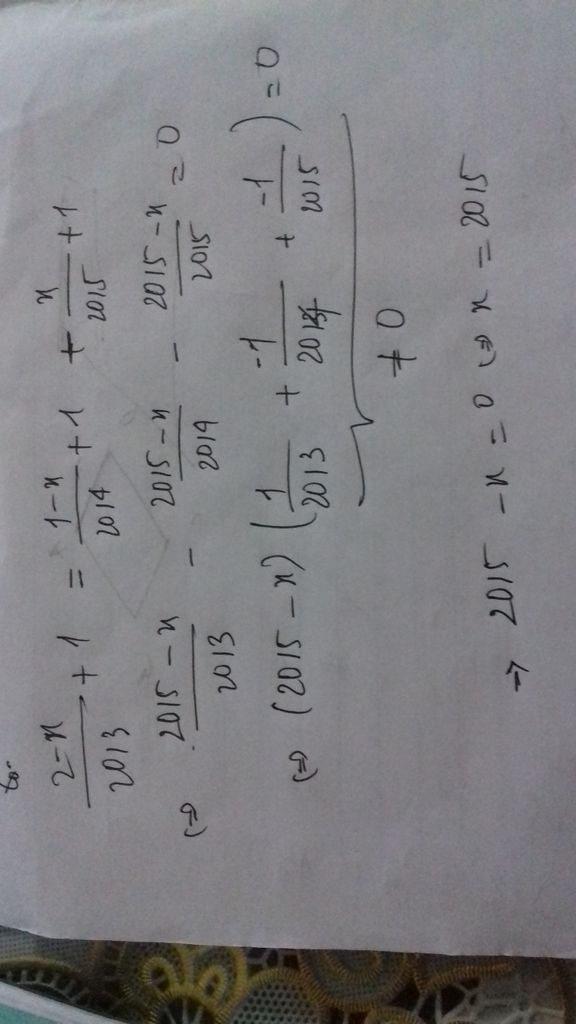 (2-x)/2013 + 1 = (1-x)/2014 + 1 + x/2015 + 1
(=) (2015-x)/2013 - (2015-x)/2014 - (2015-x)/2015 = 0
(=) (2015-x) (1/2013 + -1/2014 + -1/2015) = 0
≠ 0
=> 2015 - x = 0 (=) x = 2015